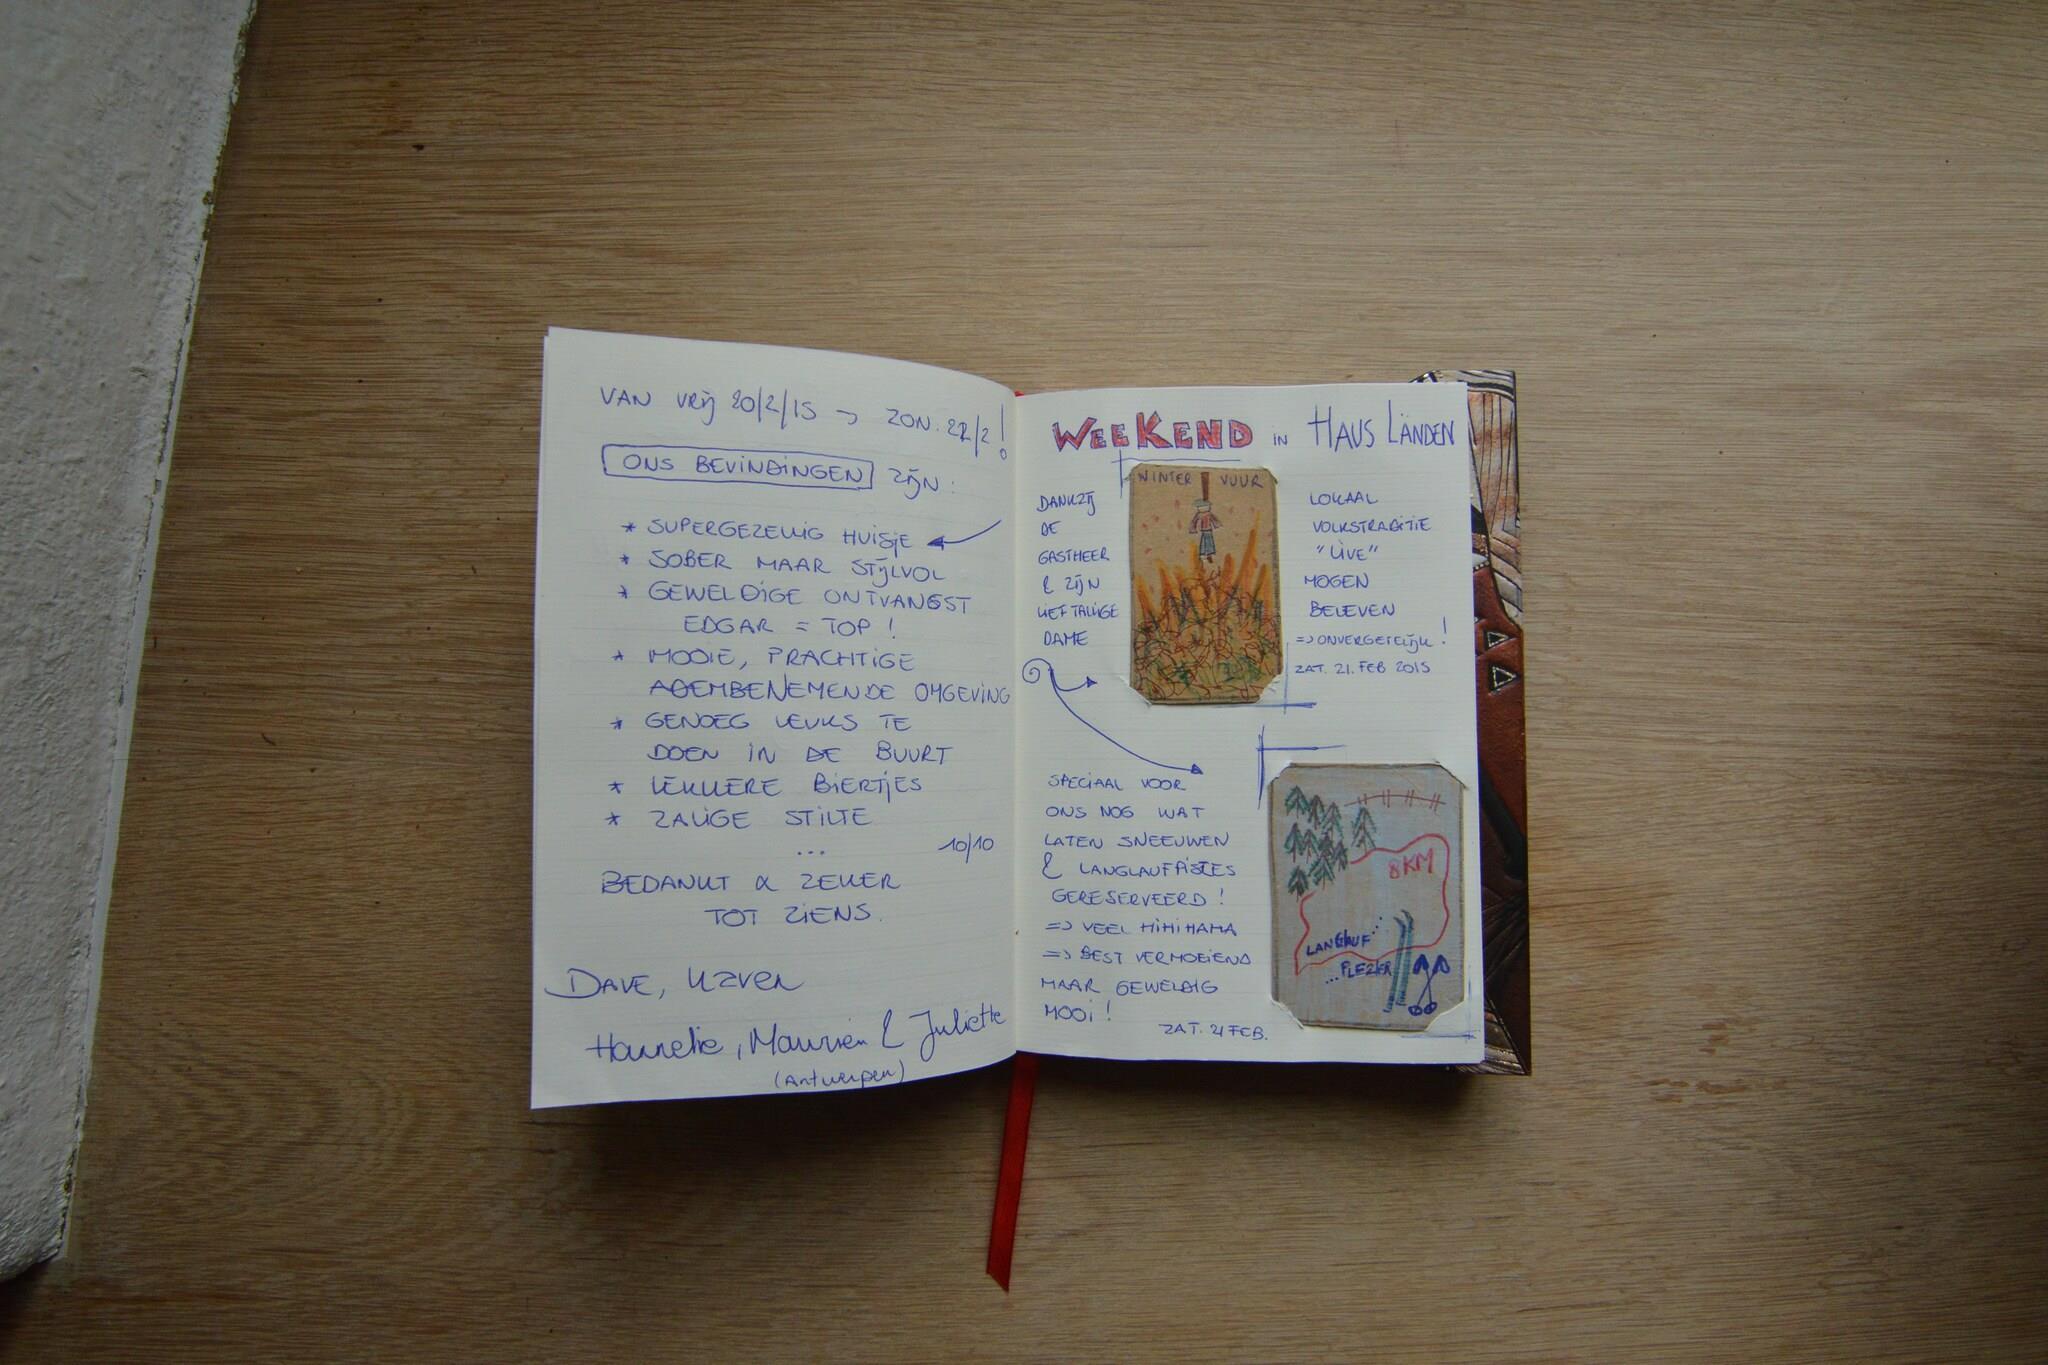 VAN VRIJ 20/2/15 → ZON. 22/2!
ONS BEVINDINGEN ZIJN:
* SUPERGEZELLIG HUISJE
* SOBER MAAR STIJLVOL
* GEWELDIGE ONTVANGST
EDGAR = TOP!
* MOOIE, PRACHTIGE
ADEMBENEMENDE OMGEVING
* GENOEG LEUKS TE
DOEN IN DE BUURT
* LEKKERE BIERTJES
* ZALIGE STILTE
...
10/10
BEDANKT & ZEKER
TOT ZIENS.
DAVE,
Hannelie, & Juliette
(Antwerpen)
WEEKEND IN HAUS LÄNDEN
DANKZIJ
DE
GASTHEER
& ZIJN
LIEFTALLIGE
DAME
WINTER VUUR
LOKAAL
VOLKSTRADITIE
"LIVE"
MOGEN
BELEVEN
=> ONVERGETELIJK!
ZAT. 21. FEB 2015
SPECIAAL VOOR
ONS NOG WAT
LATEN SNEEUWEN
& LANGLAUFPISTES
GERESERVEERD!
=> VEEL HIHIHAHA
=> BEST VERMOEIEND
MAAR GEWELDIG
MOOI!
ZAT. 21 FEB.
8KM
LANGLAUF...
...PLEZIER